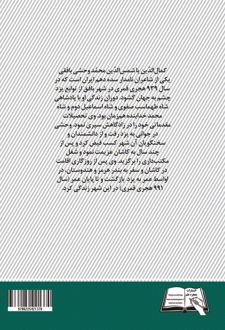 کمال‌الدّین یا شمس‌الدّین محمّد وحشی بافقی
یکی از شاعران نامدار سده دهم ایران است که در
سال ۹۳۹ هجری قمری در شهر بافق از توابع یزد
چشم به جهان گشود. دوران زندگی او با پادشاهی
شاه طهماسب صفوی و شاه اسماعیل دوم و شاه
محمد خدابنده همزمان بود. وی تحصیلات
مقدماتی خود را در زادگاهش سپری نمود. وحشی
در جوانی به یزد رفت و از دانشمندان و
سخنگویان آن شهر کسب فیض کرد و پس از
چند سال به کاشان عزیمت نمود و شغل
مکتب‌داری را برگزید. وی پس از روزگاری اقامت
در کاشان و سفر به بندر هرمز و هندوستان، در
اواسط عمر به یزد بازگشت و تا پایان عمر (سال
۹۹۱ هجری قمری) در این شهر زندگی کرد.